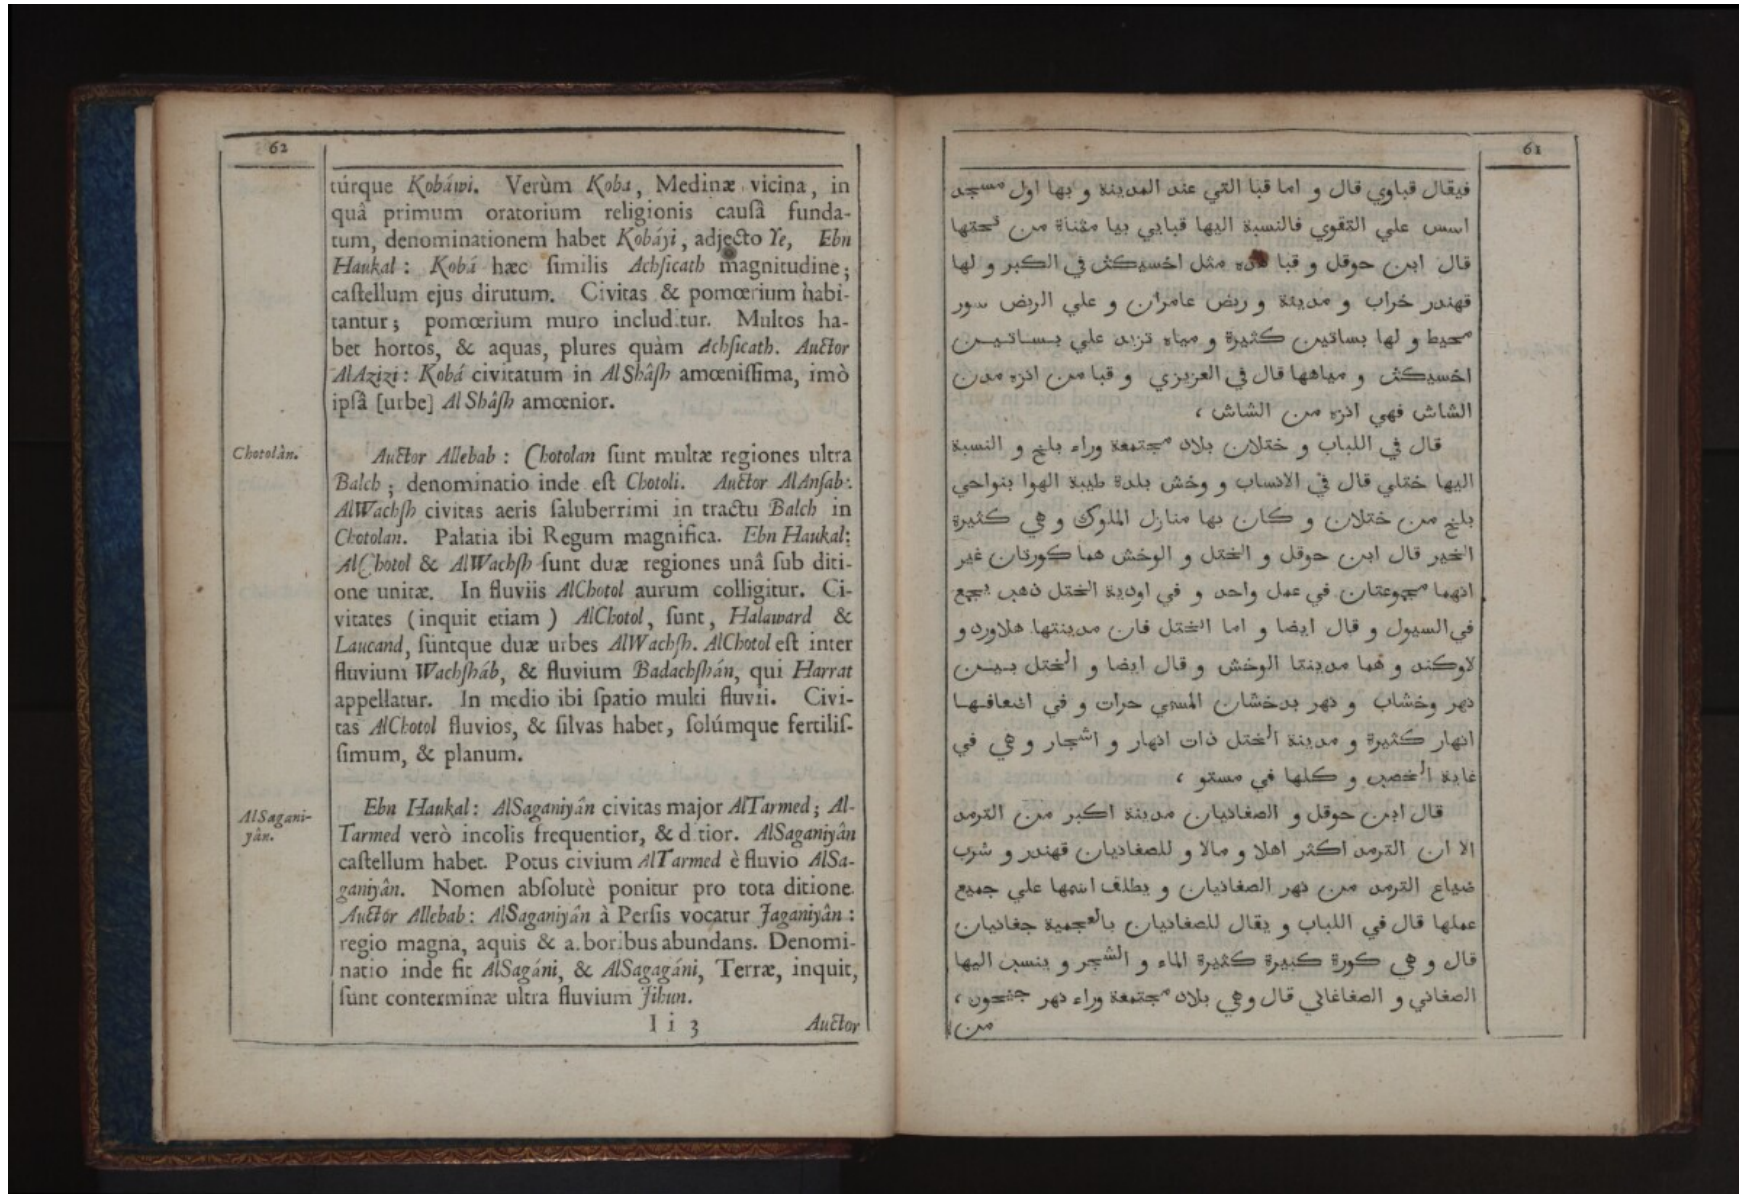 62
túrque Kobáwi. Verùm Koba, Medinæ vicina, in
quâ primum oratorium religionis causâ funda-
tum, denominationem habet Kobáyi, adjecto Ye, Ebn
Haukal: Kobá hæc similis Achsicath magnitudine;
castellum ejus dirutum. Civitas & pomœrium habi-
tantur; pomœrium muro includitur. Multos ha-
bet hortos, & aquas, plures quàm Achsicath. Auctor
AlAzizi: Kobá civitatum in AlShâsh amœnissima, imò
ipsâ [urbe] Al Shâsh amœnior.
Chotolân.
Auctor Allebab: Chotolan sunt multæ regiones ultra
Balch; denominatio inde est Chotoli. Auctor AlAnsab:
AlWachsh civitas aeris saluberrimi in tractu Balch in
Chotolan. Palatia ibi Regum magnifica. Ebn Haukal:
AlChotol & AlWachsh sunt duæ regiones unâ sub diti-
one unitæ. In fluviis AlChotol aurum colligitur. Ci-
vitates (inquit etiam) AlChotol, sunt, Halaward &
Laucand, suntque duæ urbes AlWachsh. AlChotol est inter
fluvium Wachsháb, & fluvium Badachshán, qui Harrat
appellatur. In medio ibi spatio multi fluvii. Civi-
tas AlChotol fluvios, & silvas habet, solúmque fertilis-
simum, & planum.
AlSagani-
yân.
Ebn Haukal: AlSaganiyân civitas major AlTarmed; Al-
Tarmed verò incolis frequentior, & ditior. AlSaganiyân
castellum habet. Potus civium AlTarmed è fluvio AlSa-
ganiyân. Nomen absolutè ponitur pro tota ditione.
Auctor Allebab: AlSaganiyân à Persis vocatur Jaganiyân:
regio magna, aquis & arboribus abundans. Denomi-
natio inde fit AlSagáni, & AlSagagáni, Terræ, inquit,
sunt conterminæ ultra fluvium Jihun.
I i 3 Auctor
61
فيقال قباوي قال و اما قبا التي عند المدينة و بها اول مسجد
اسس علي التقوي فالنسبة اليها قبايي بيا مثناة من تحتها
قال ابن حوقل و قبا هذه مثل اخسيكث في الكبر و لها
قهندر خراب و مدينة و ربض عامران و علي الربض سور
محيط و لها بساتين كثيرة و مياه تزيد علي بساتين
اخسيكث و مياهها قال في العزيزي و قبا من انزه مدن
الشاش فهي انزه من الشاش ،
قال في اللباب و ختلان بلاد مجتمعة وراء بلخ و النسبة
اليها ختلي قال في الانساب و وخش بلدة طيبة الهوا بنواحي
بلخ من ختلان و كان بها منازل الملوك و هي كثيرة
الخير قال ابن حوقل و الختل و الوخش هما كورتان غير
انهما مجموعتان في عمل واحد و في اودية الختل ذهب يجمع
في السيول و قال ايضا و اما الختل فان مدينتها هلاورد و
لاوكند و هما مدينتا الوخش و قال ايضا و الختل بين
نهر وخشاب و نهر بدخشان المسمي حرات و في اضعافها
انهار كثيرة و مدينة الختل ذات انهار و اشجار و هي في
غاية الخصب و كلها في مستو ،
قال ابن حوقل و الصغانيان مدينة اكبر من الترمد
الا ان الترمد اكثر اهلا و مالا و للصغانيان قهندر و شرب
ضياع الترمد من نهر الصغانيان و يطلق اسمها علي جميع
عملها قال في اللباب و يقال للصغانيان بالعجمية جغانيان
قال و هي كورة كبيرة كثيرة الماء و الشجر و ينسب اليها
الصغاني و الصغاغاني قال وهي بلاد مجتمعة وراء نهر جيحون ،
من